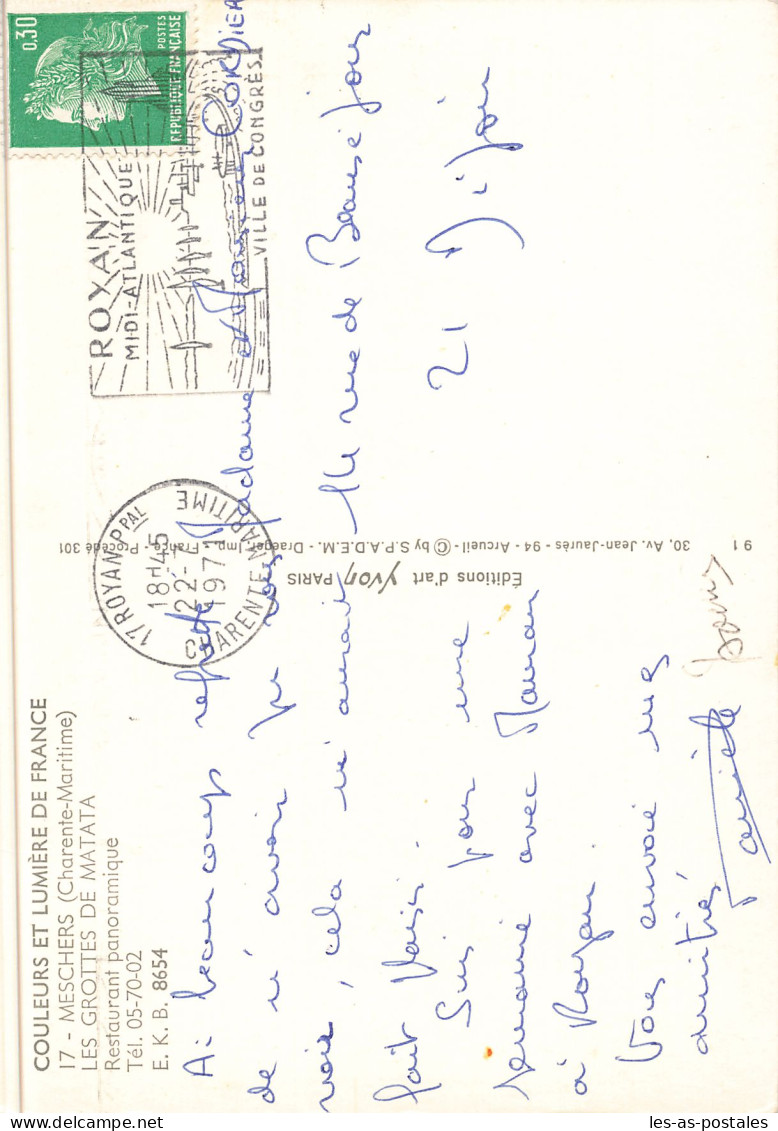 COULEURS ET LUMIÈRE DE FRANCE
17 - MESCHERS (Charente-Maritime)
LES GROTTES DE MATATA
Restaurant panoramique
Tél. 05-70-02
E. K. B. 8654
Ai beaucoup regretté
de n'avoir pu vous
voir, cela m'aurait
fait plaisir.
Suis pour une
semaine avec Maman
à Royan.
Vous envoie mes
amitiés
17 ROYAN PPAL
18H45
22-7
1971
CHARENTE-MARITIME
ROYAN
MIDI-ATLANTIQUE
VILLE DE CONGRÈS
0,30
POSTES
REPUBLIQUE FRANÇAISE
Madame CORDIER
rue de Beauséjour
21 Dijon
Éditions d'art Yvon PARIS
30, Av. Jean-Jaurès - 94 - Arcueil - © by S.P.A.D.E.M. - Draeger Imp. - France - Procédé 301
91
les-as-postales